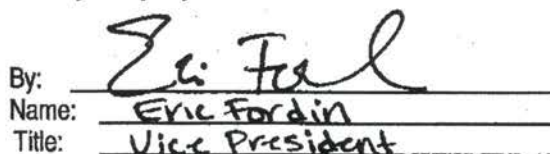 By: Eri Ford
Name: Eric Fordin
Title: Vice President